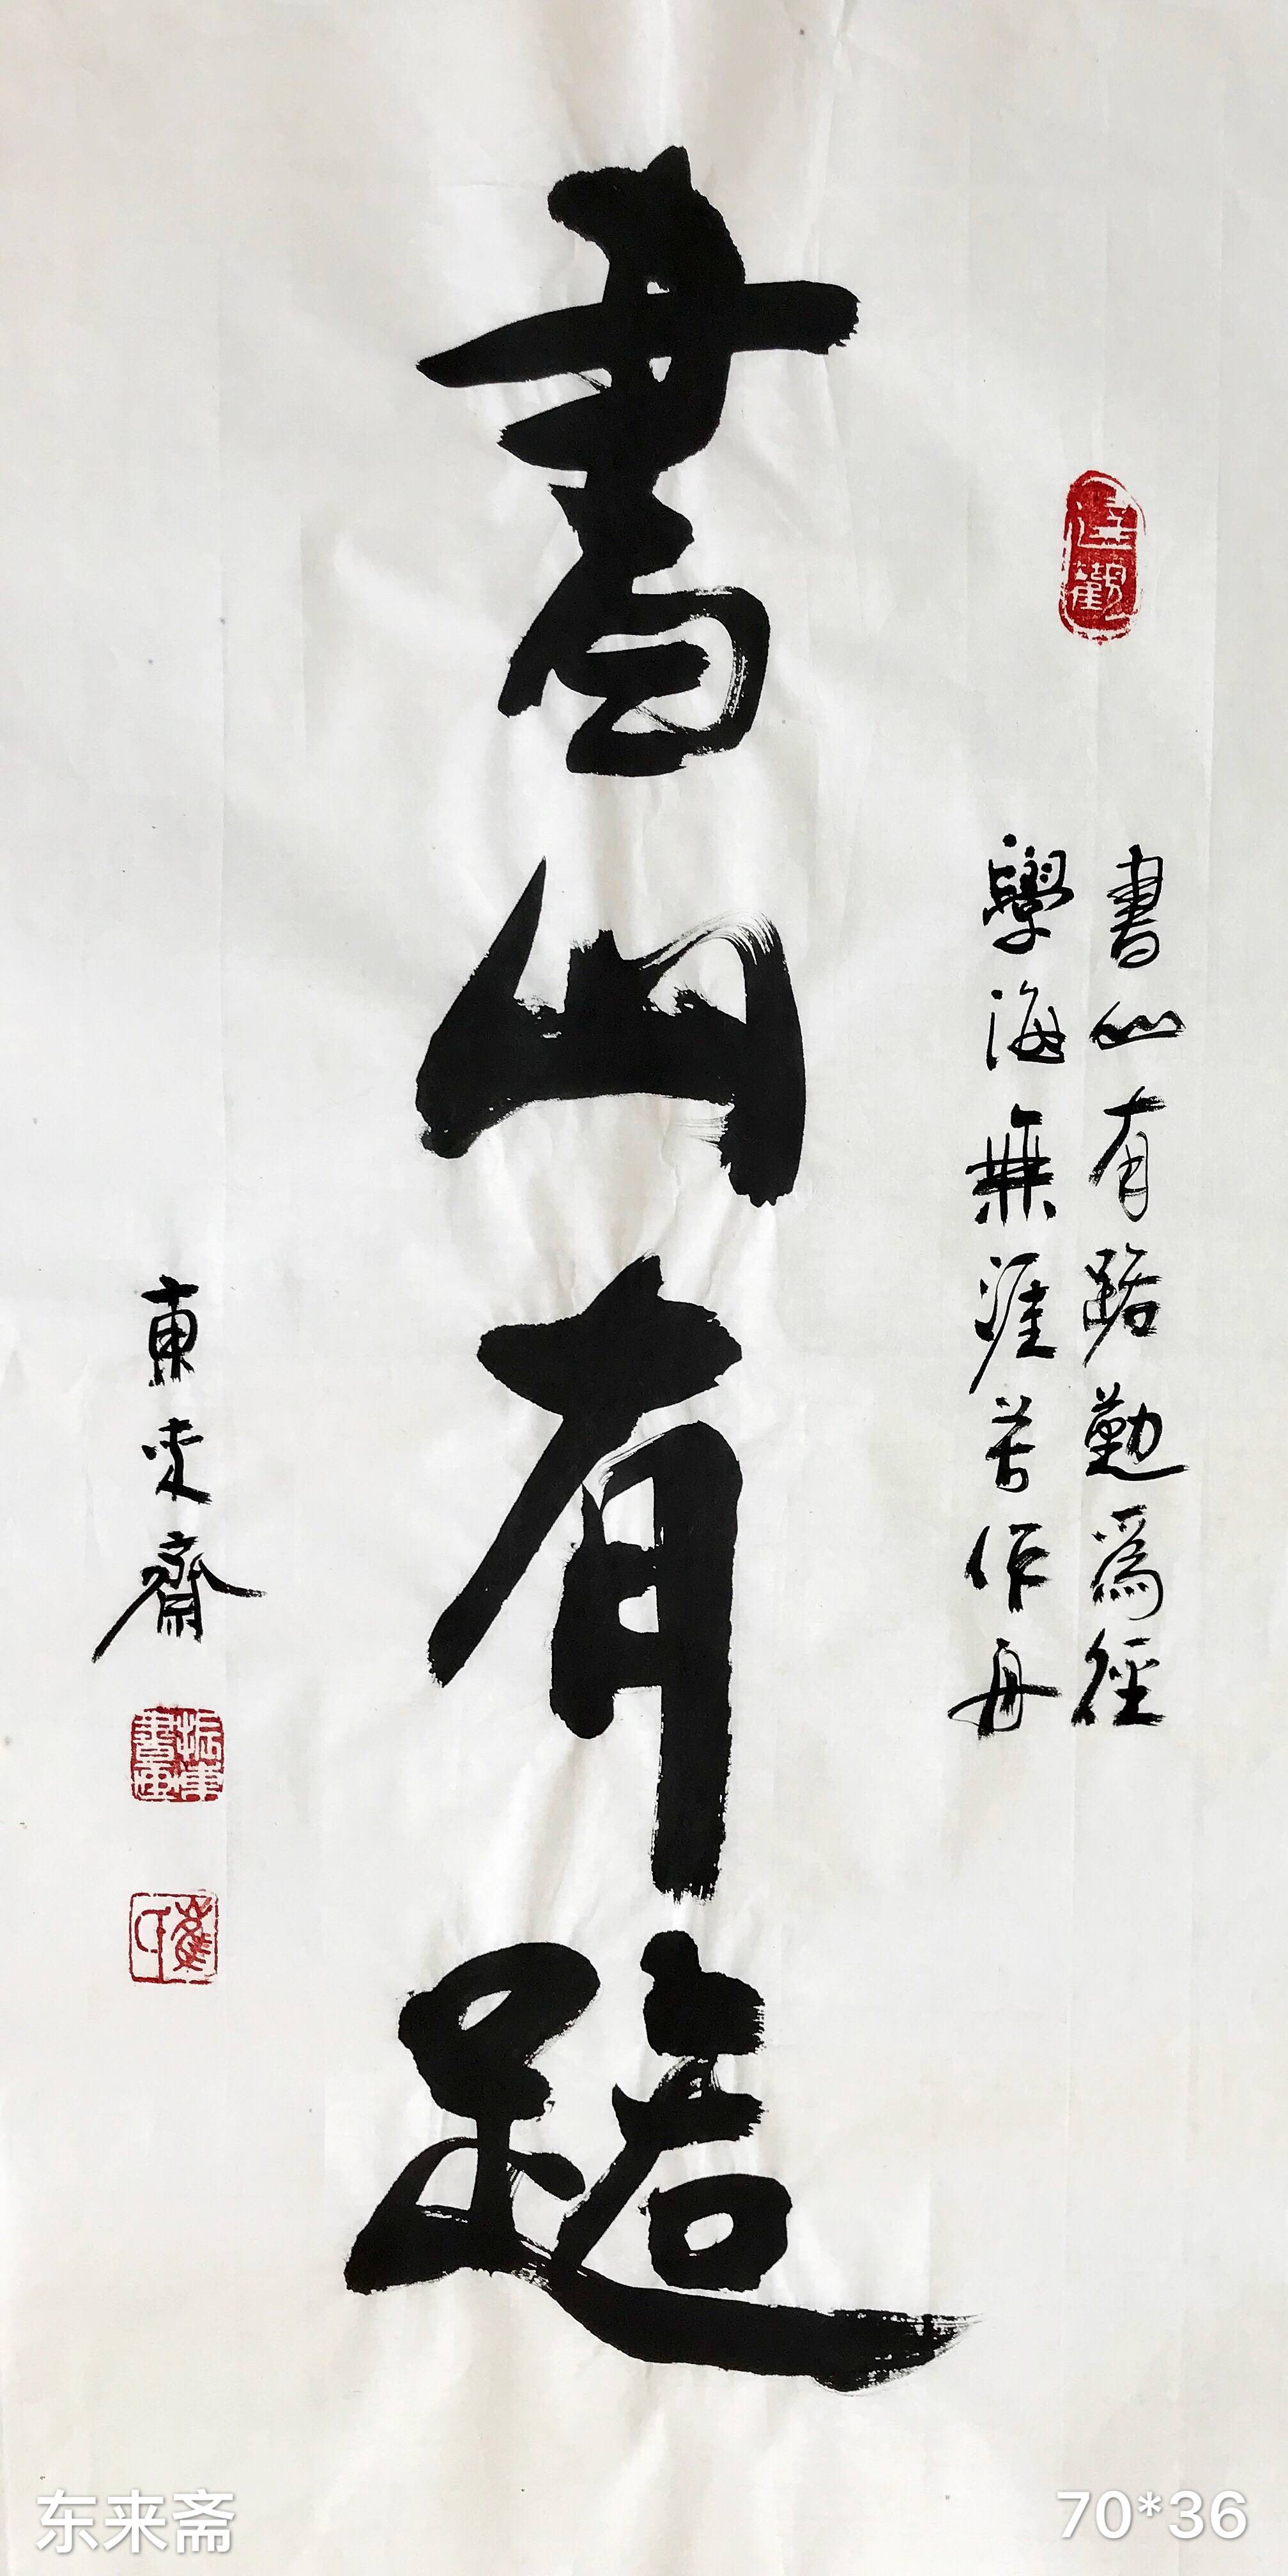 達觀
書山有路勤爲徑
學海無涯苦作舟
書山有路
東來齋
书画
东来斋
70*36